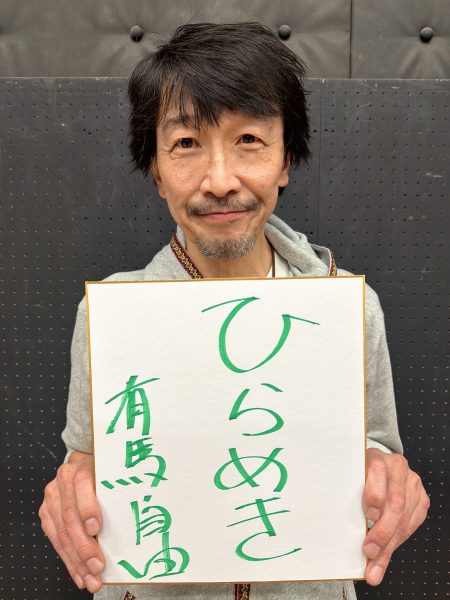 ひらめき
有馬自由